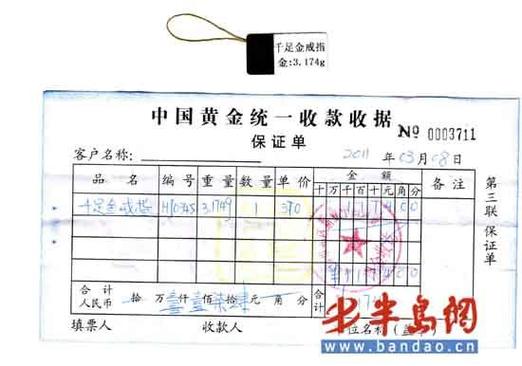 千足金戒指
金:3.174g
中国黄金统一收款收据
保证单
№ 0003711
客户名称:
2011 年 03 月 08 日
品名 编号 重量 数量 单价 金额 备注
十万千百十元角分
千足金戒指 3.174g 1 370
合计人民币 拾 万 壹仟 壹佰 柒拾 肆元 角 分
合计
填票人 收款人 位名称(盖章)
第三联 保证单
半岛網
www.bandao.cn